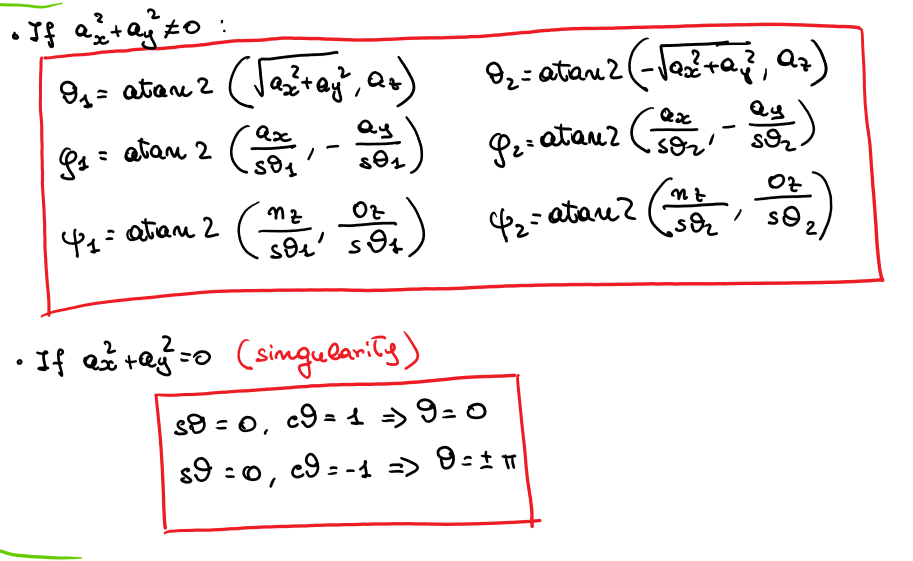 • If aₓ²+a_y²≠0 :
ϑ₁= atan2 (√(aₓ²+a_y²), a_z) ϑ₂= atan2 (-√(aₓ²+a_y²), a_z)
φ₁= atan2 (aₓ/sϑ₁, -a_y/sϑ₁) φ₂= atan2 (aₓ/sϑ₂, -a_y/sϑ₂)
ψ₁= atan2 (n_z/sϑ₁, o_z/sϑ₁) ψ₂= atan2 (n_z/sϑ₂, o_z/sϑ₂)
• If aₓ²+a_y²=0 (singularity)
sϑ=0, cϑ=1 => ϑ=0
sϑ=0, cϑ=-1 => ϑ=±π